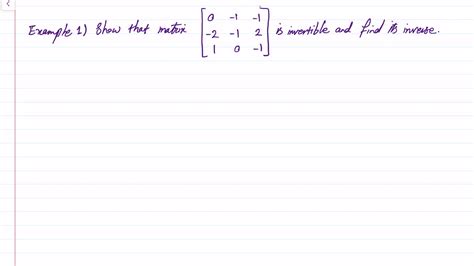 Example 1) Show that matrix [0 -1 -1
-2 -1 2
1 0 -1] is invertible and find its inverse.